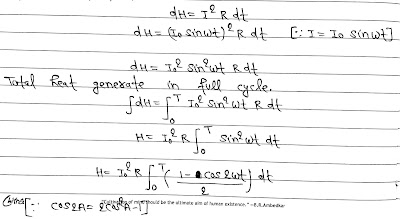 dH = I² R dt
dH = (I₀ sinωt)² R dt [∵ I = I₀ sinωt]
dH = I₀² sin²ωt R dt
Total heat generate in full cycle.
∫dH = ∫₀ᵀ I₀² sin²ωt R dt
H = I₀² R ∫₀ᵀ sin²ωt dt
H = I₀² R ∫₀ᵀ (1 - cos2ωt / 2) dt
mind should be the ultimate aim of human existence." –B.R.Ambedkar
[∵ cos2A = 2cos²A-1]